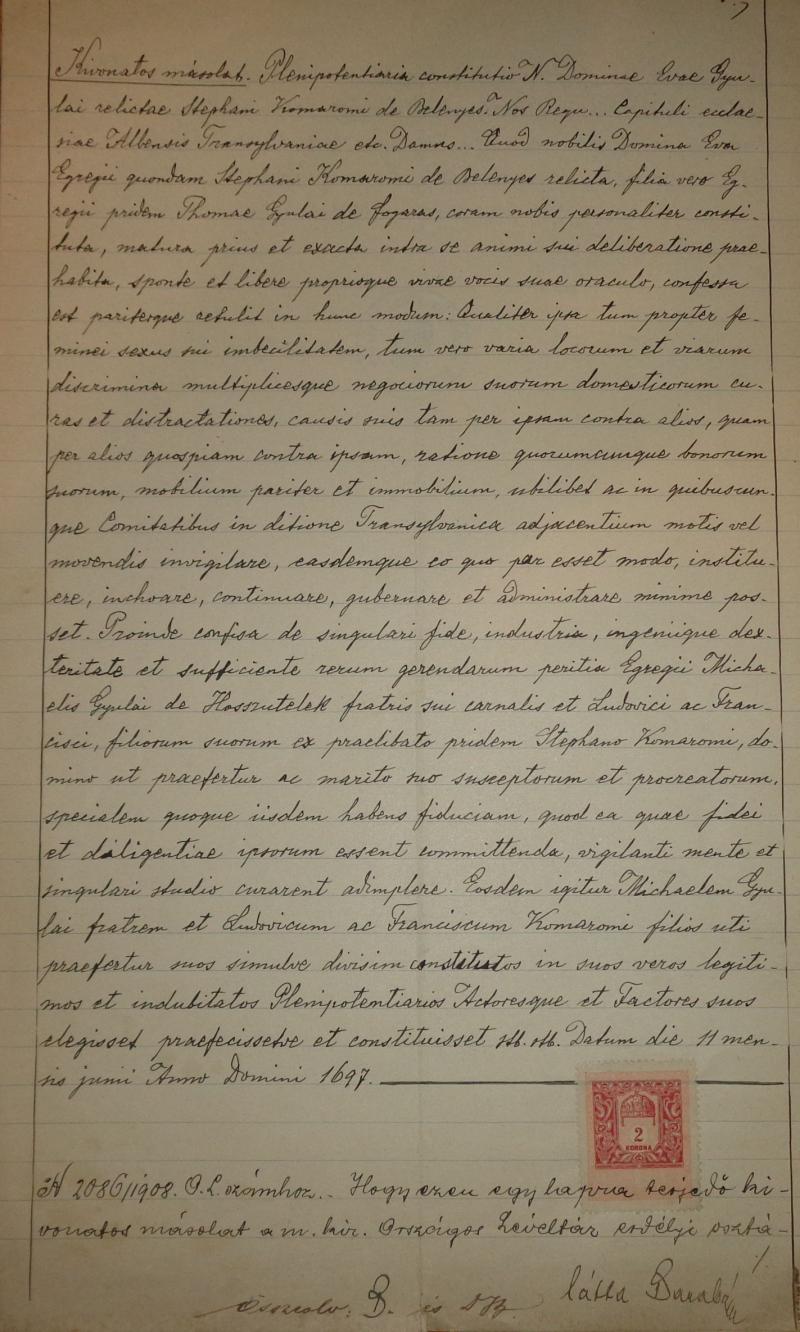 Kivonatos másolat. Plenipotentiaria constitutio N. Dominae Evae Gyu-
lai relictae Stephani Komaromi de Belenyes. Nos Requ... Capituli eccle-
siae Albensis Transylvaniae etc. Damus... Quod nobilis Domina Eva
Egregii quondam Stephani Komaromi de Belenyes relicta, filia vero Eg-
regii pridem Thomae Gyulai de Fogaras, coram nobis personaliter consti-
tuta, matura prius et exacta intra se animi sui deliberatione prae-
habita, sponte et libere proprioque vivae vocis suae oraculo, confessa
est pariterque retulit in hunc modum: Qualiter ipsa tum propter fe-
minei sexus sui imbecilitatem, tum vero varia locorum et viarum
discrimina multiplicesque negociorum suorum domesticorum cu-
ras et distractationes, causis suis tam per ipsam contra alios, quam
per alios quospiam contra ipsam, ratione quorumcumque bonorum
suorum, mobilium pariter et immobilium, ubilibet ac in quibuscun-
que Comitatibus in ditione Transylvanica adjacentium motis vel
movendis invigilare, easdemque eo quo par esset modo, institu-
ere, inchoare, continuare, gubernare et administrare minime pos-
set. Proinde confisa de singulari fide, industria, ingeniique dex-
teritate et sufficiente rerum gerendarum peritia Egregii Micha-
elis Gyulai de Hosszutelek fratris sui carnalis et Ludovici ac Fran-
cisci, filiorum suorum ex praelibato pridem Stephano Komaromi, do-
mino ut praefertur ac marito suo susceptorum et procreatorum,
specialem quoque iisdem habens fiduciam, quod ea quae fidei
et diligentiae ipsorum essent committenda, vigilanti mente et
singulari studio curarent adimplere. Eosdem igitur Michaelem Gyu-
lai fratrem et Ludovicum ac Franciscum Komaromi filios uti
praefertur suos simulve divisim constitutos in suos veros legiti-
mos et indubitatos Plenipotentiarios Actoresque et Factores suos
elegisset praefecissetve et constituisset stb. stb. Datum die 11 men-
sis junii Anno Domini 1697.
2
KORONA
A 2086/1908. O. L. számhoz. Hogy ezen egy lapra terjedő ki-
vonatos másolat a m. kir. Országos Levéltár erdélyi osztá-
látta Barabás